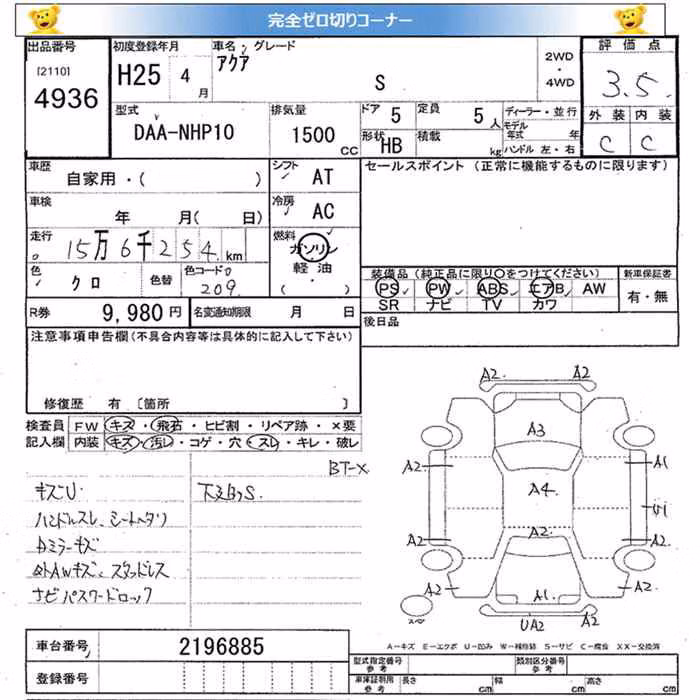 完全ゼロ切りコーナー
出品番号 初度登録年月 車名 グレード 2WD・4WD 評価点
[2110] 4936 H25 4月 アクア S 3.5
外装 内装
C C
型式 排気量 ドア 5 定員 5人 ディーラー・並行
DAA-NHP10 1500cc 形状 HB 積載 kg モデル年式 年
ハンドル 左・右
車歴 シフト セールスポイント (正常に機能するものに限ります)
自家用・( ) AT
車検 冷房
年 月( 日) AC
走行 燃料
15万6千254km ガソリン
軽油
・( )
色 クロ 色替 色コード 209
装備品 (純正品に限り○をつけてください) 新車保証書
PS PW ABS エアB AW 有・無
SR ナビ TV カワ
R券 9,980円 名変通知期限 月 日 後日品
注意事項申告欄(不具合内容等は具体的に記入して下さい)
修復歴 有 〔箇所 〕
検査員 FW キズ・飛石・ヒビ割・リペア跡・×要
記入欄 内装 キズ・汚レ・コゲ・穴・スレ・キレ・破レ
BT-X
キズU. 下廻りS.
ハンドルスレ、シートヘタリ
Dミラーキズ
外AWキズ、スタッドレス
ナビパスワードロック
A2 A2
A3
A2 A1
A4
U1
A2
A2 A2
A2 A1 A2
UA2
スペ
A-キズ E-エクボ U-凹み W-補修跡 S-サビ C-腐食 XX-交換済
車台番号 2196885
登録番号
型式指定番号 参考 類別区分番号 参考
車庫証明用 参考 長さ cm 幅 cm 高さ cm